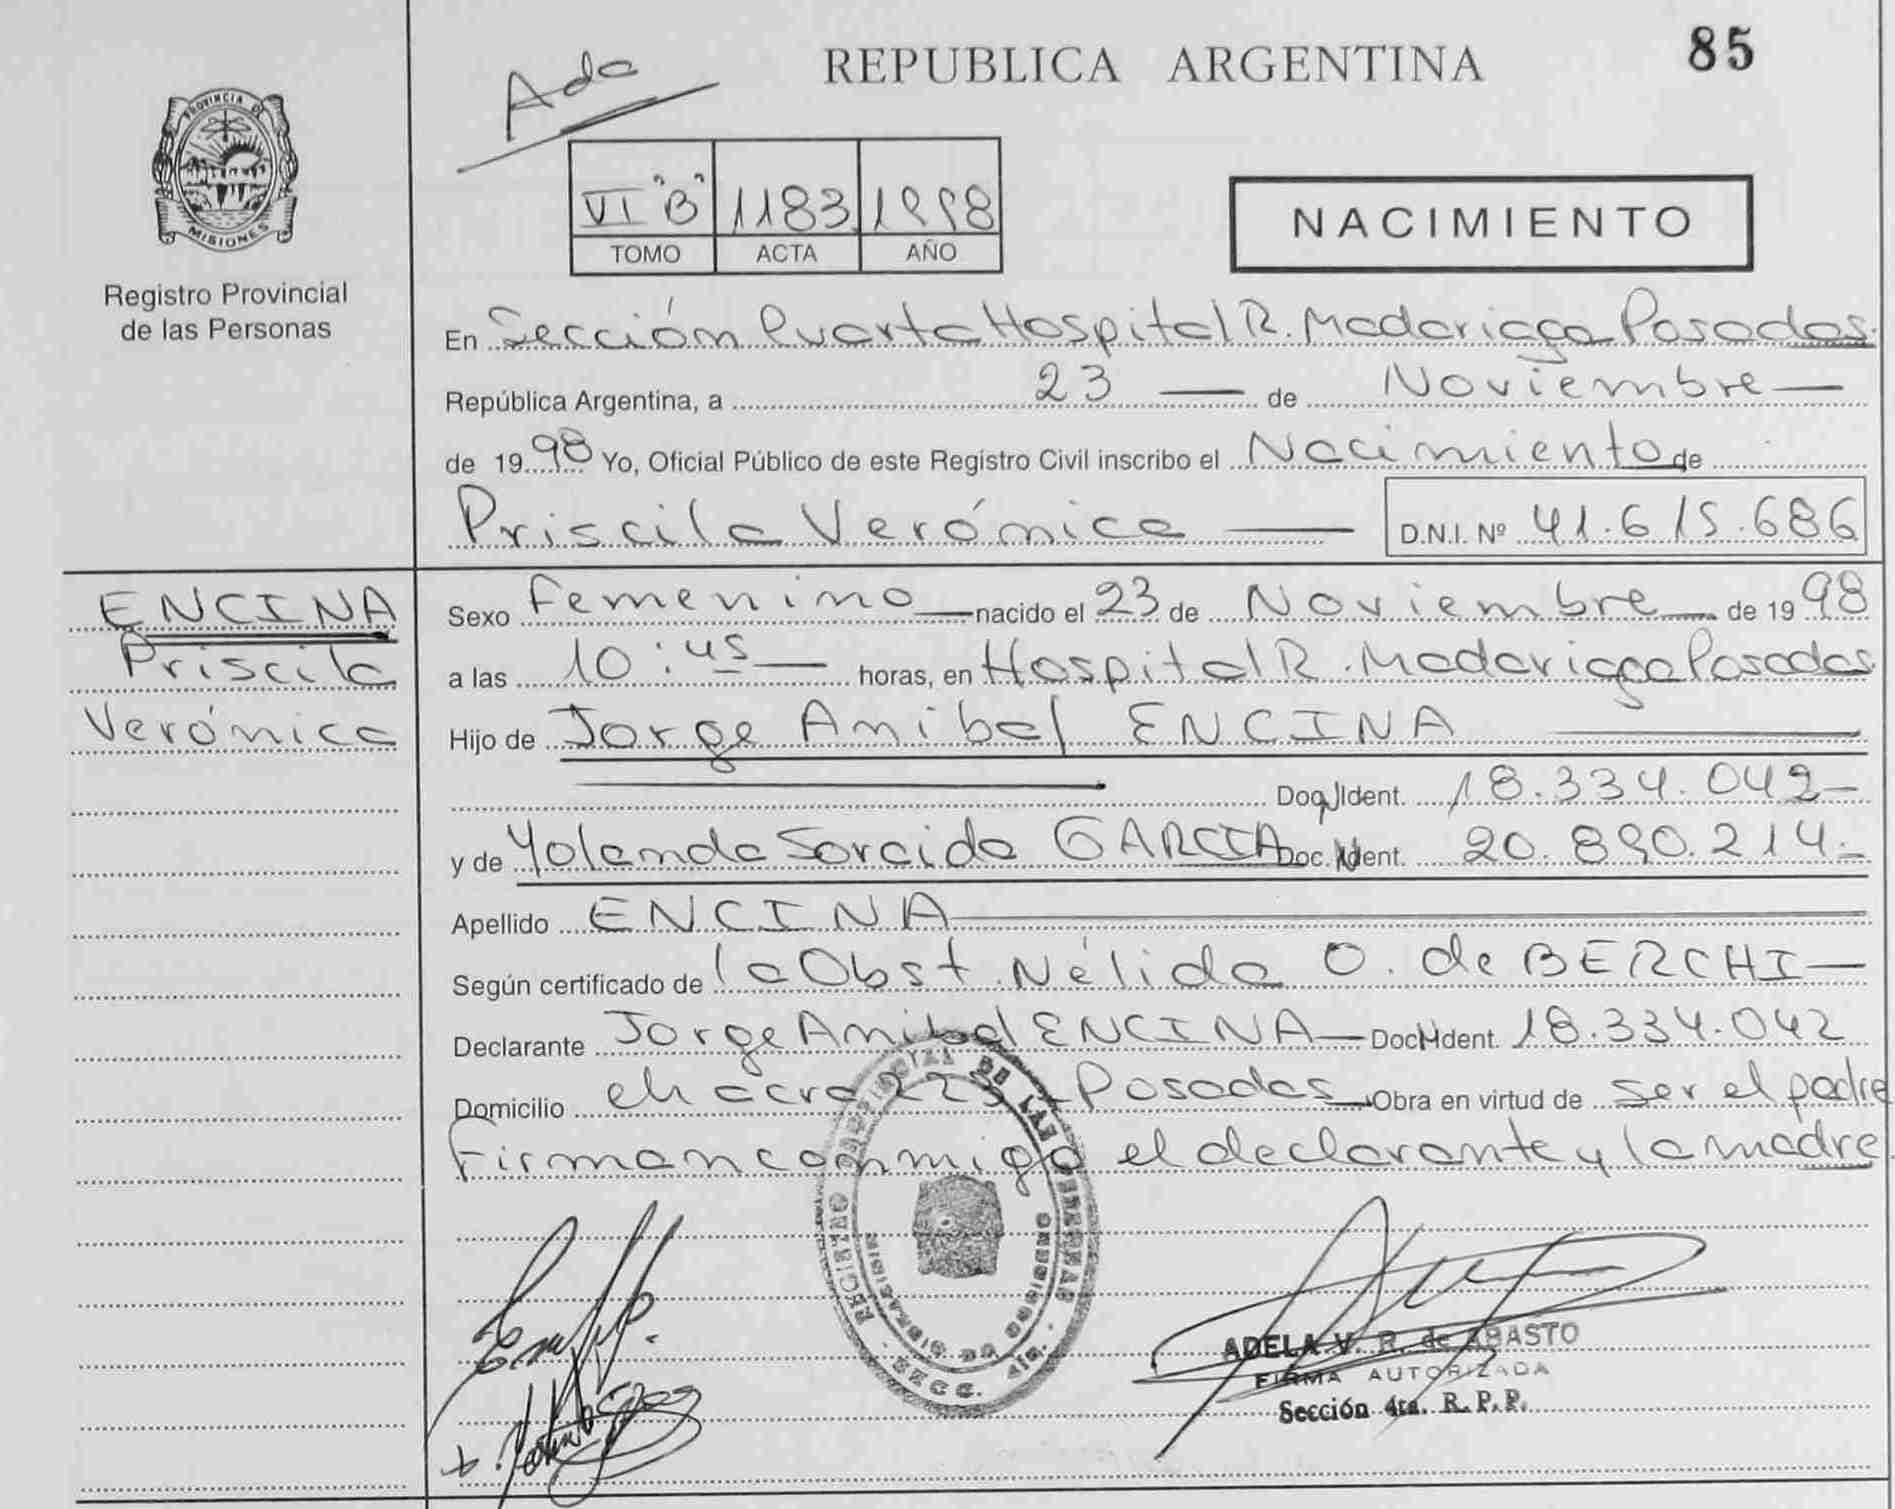 REPUBLICA ARGENTINA
85
Ada
PROVINCIA DE MISIONES
VI "B" 1183 1998
TOMO ACTA AÑO
NACIMIENTO
Registro Provincial
de las Personas
En Sección Cuarta Hospital R. Madariaga Posadas
República Argentina, a 23 de Noviembre
de 1998 Yo, Oficial Público de este Registro Civil inscribo el Nacimiento de
Priscila Verónica D.N.I. Nº 41.615.686
ENCINA
Priscila
Verónica
Sexo femenino nacido el 23 de Noviembre de 1998
a las 10:45 horas, en Hospital R. Madariaga Posadas
Hijo de Jorge Anibal ENCINA
Doc. Ident. 18.334.042
y de Yolanda GARCIA Doc. Ident. 20.890.214
Apellido ENCINA
Según certificado de la Obst. Nélida O. de BERCHI
Declarante Jorge Anibal ENCINA Doc. Ident. 18.334.042
Domicilio chacra 223 Posadas Obra en virtud de ser el padre
Firman conmigo el declarante y la madre
REGISTRO PROVINCIAL DE LAS PERSONAS
SECC. 4ta.
ADELA V. R. de ABASTO
FIRMA AUTORIZADA
Sección 4ta. R. P. P.